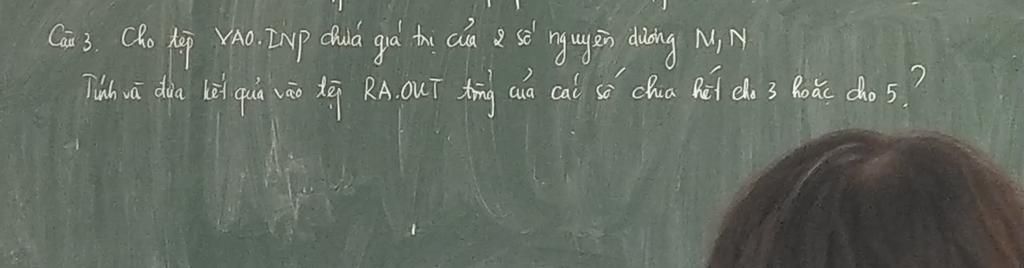 Câu 3. Cho tệp VAO.INP chứa giá trị của 2 số nguyên dương M, N
Tính và đưa kết quả vào tệp RA.OUT tổng của các số chia hết cho 3 hoặc cho 5.?